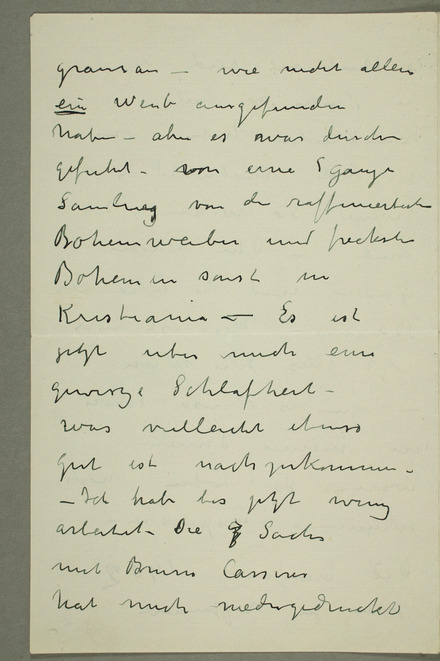 grausam – wie nicht allein
ein Weib ausgefunden
haben – aber es war durch
gefuhrt – von eine ganze
Samlung von die raffiniertesten
Bohemweiber und frechsten
Bohemen sonst in
Kristiania – Es ist
jetzt uber mich eine
gewisze Schlafheit –
was vielleicht etwas
gut ist nach gekommen –
– Ich habe bis jetzt wenig
arbeitet – Die Sache
mit Bruno Cassirer
hat mich niedergedruckt